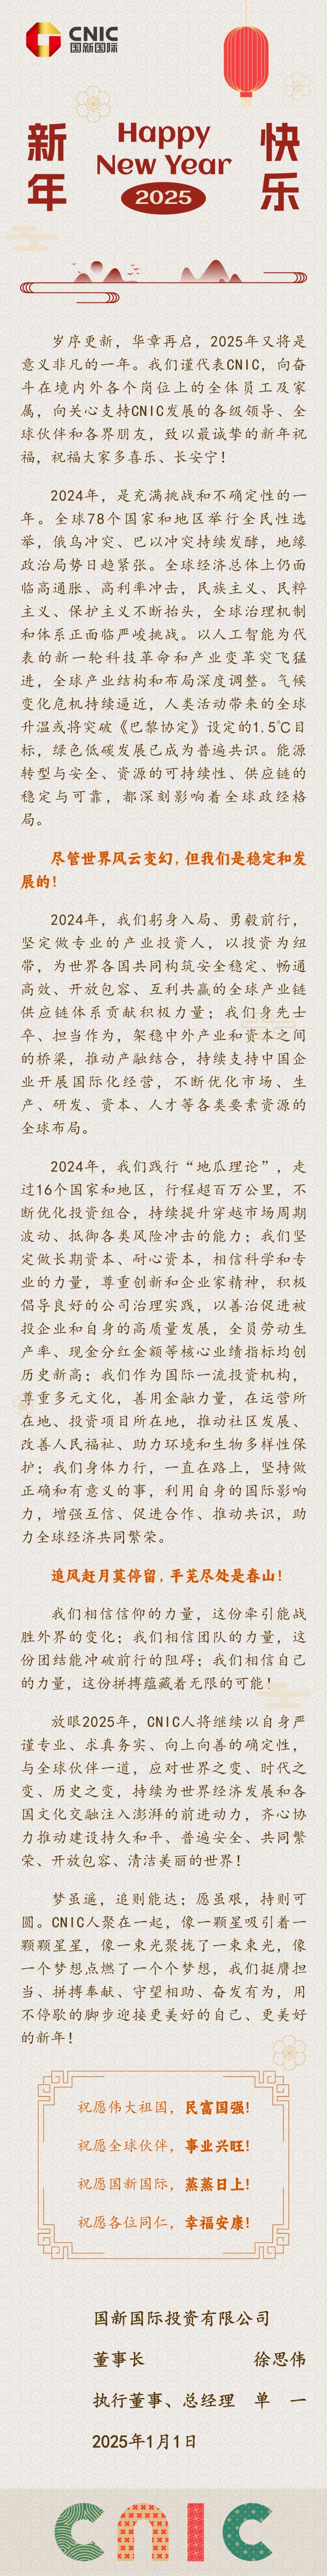 CNIC
国新国际
新年
Happy
New Year
2025
快乐
岁序更新，华章再启，2025年又将是
意义非凡的一年。我们谨代表CNIC，向奋
斗在境内外各个岗位上的全体员工及家
属，向关心支持CNIC发展的各级领导、全
球伙伴和各界朋友，致以最诚挚的新年祝
福，祝福大家多喜乐、长安宁！
2024年，是充满挑战和不确定性的一
年。全球78个国家和地区举行全民性选
举，俄乌冲突、巴以冲突持续发酵，地缘
政治局势日趋紧张。全球经济总体上仍面
临高通胀、高利率冲击，民族主义、民粹
主义、保护主义不断抬头，全球治理机制
和体系正面临严峻挑战。以人工智能为代
表的新一轮科技革命和产业变革突飞猛
进，全球产业结构和布局深度调整。气候
变化危机持续逼近，人类活动带来的全球
升温或将突破《巴黎协定》设定的1.5℃目
标，绿色低碳发展已成为普遍共识。能源
转型与安全、资源的可持续性、供应链的
稳定与可靠，都深刻影响着全球政经格
局。
尽管世界风云变幻，但我们是稳定和发
展的！
2024年，我们躬身入局、勇毅前行，
坚定做专业的产业投资人，以投资为纽
带，为世界各国共同构筑安全稳定、畅通
高效、开放包容、互利共赢的全球产业链
供应链体系贡献积极力量；我们身先士
卒、担当作为，架稳中外产业和资本之间
的桥梁，推动产融结合，持续支持中国企
业开展国际化经营，不断优化市场、生
产、研发、资本、人才等各类要素资源的
全球布局。
2024年，我们践行“地瓜理论”，走
过16个国家和地区，行程超百万公里，不
断优化投资组合，持续提升穿越市场周期
波动、抵御各类风险冲击的能力；我们坚
定做长期资本、耐心资本，相信科学和专
业的力量，尊重创新和企业家精神，积极
倡导良好的公司治理实践，以善治促进被
投企业和自身的高质量发展，全员劳动生
产率、现金分红金额等核心业绩指标均创
历史新高；我们作为国际一流投资机构，
尊重多元文化，善用金融力量，在运营所
在地、投资项目所在地，推动社区发展、
改善人民福祉、助力环境和生物多样性保
护；我们身体力行，一直在路上，坚持做
正确和有意义的事，利用自身的国际影响
力，增强互信、促进合作、推动共识，助
力全球经济共同繁荣。
追风赶月莫停留，平芜尽处是春山！
我们相信信仰的力量，这份牵引能战
胜外界的变化；我们相信团队的力量，这
份团结能冲破前行的阻碍；我们相信自己
的力量，这份拼搏蕴藏着无限的可能！
放眼2025年，CNIC人将继续以自身严
谨专业、求真务实、向上向善的确定性，
与全球伙伴一道，应对世界之变、时代之
变、历史之变，持续为世界经济发展和各
国文化交融注入澎湃的前进动力，齐心协
力推动建设持久和平、普遍安全、共同繁
荣、开放包容、清洁美丽的世界！
梦虽遥，追则能达；愿虽艰，持则可
圆。CNIC人聚在一起，像一颗星吸引着一
颗颗星星，像一束光聚拢了一束束光，像
一个梦想点燃了一个个梦想，我们挺膺担
当、拼搏奉献、守望相助、奋发有为，用
不停歇的脚步迎接更美好的自己、更美好
的新年！
祝愿伟大祖国，民富国强！
祝愿全球伙伴，事业兴旺！
祝愿国新国际，蒸蒸日上！
祝愿各位同仁，幸福安康！
国新国际投资有限公司
董事长 徐思伟
执行董事、总经理 单 一
2025年1月1日
CNIC